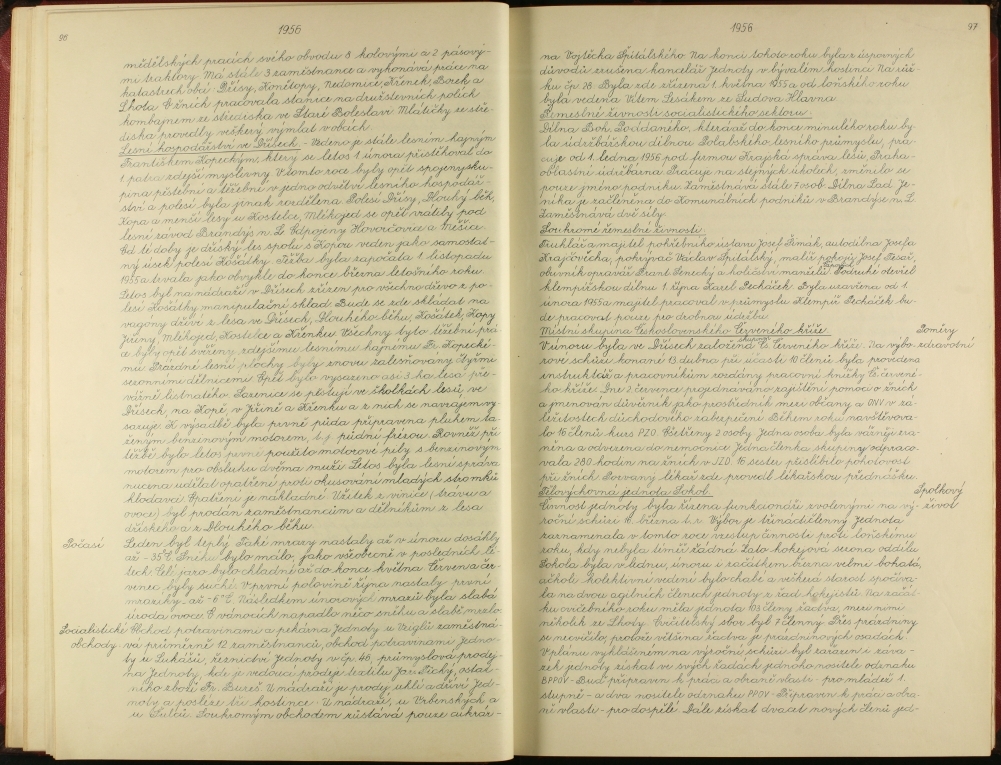 96
1956
mědělských pracích svého obvodu 8 kolovými a 2 pásový-
mi traktory. Má stále 3 zaměstnance a vykonává práce na
katastrech obcí Dřísy, Konětopy, Nedomice, Křenek, Borek a
Lhota. O žních pracovala stanice na družstevních polích
kombajnem ze střediska ve Staré Boleslavi. Mlátičky ze stře-
diska provedly veškerý výmlat v obcích.
Lesní hospodářství ve Dřísech. - Vedeno je stále lesním hajným
Františkem Kopeckým, který se letos 1. února přistěhoval do
1. patra zdejší myslivny. V tomto roce byly opět spojeny sku-
pina pěstební a těžební v jedno odvětví lesního hospodář-
ství a polesí byla jinak rozdělena. Polesí Dřísy, Dlouhý běh,
Kopa a menší lesy u Kostelce, Mlékojed se opět vrátily pod
lesní závod Brandýs n. L. Odpojeny Hovorčovice a Měšice.
Od té doby je dříský les spolu s Kopou veden jako samostat-
ný úsek polesí Košátky. Těžba byla započata 1. listopadu
1955 a trvala jako obvykle do konce března letošního roku.
Letos byl na nádraží v Dřísech zřízen pro všechno dřevo z po-
lesí Košátky manipulační sklad. Bude se zde skládat na
vagóny dříví z lesa ve Dřísech, Dlouhého běhu, Košátek, Kopy
Jiřiny, Mlékojed, Kostelce a Křenku. Všechny tyto těžební prá-
ce byly opět svěřeny zdejšímu lesnímu hajnému Fr. Kopecké-
mu. Prázdné lesní plochy byly znovu zalesňovány čtyřmi
sezonními dělnicemi. Opět bylo vysazeno asi 3 ha lesa pře-
vážně listnatého. Sazenice se pěstují ve školkách lesů, ve
Dřísech, na Kopě, v Jiřině a Křenku a z nich se navzájem vy-
sazuje. K výsadbě byla prvně půda připravena pluhem ta-
ženým benzinovým motorem, t. j. půdní frézou. Rovněž při
těžbě bylo letos prvně použito motorové pily s benzinovým
motorem pro obsluhu dvěma muži. Letos byla lesní správa
nucena udělat opatření proti okusování mladých stromků
hlodavci. Opatření je nákladné. Užitek z vinice (trávu a
ovoce) byl prodán zaměstnancům a dělníkům z lesa
dříského a z Dlouhého běhu.
Počasí
Leden byl teplý. Také mrazy nastaly až v únoru dosáhly
až - 35°C. Sněhu bylo málo, jako všeobecně v posledních le-
tech. Celé jaro bylo chladné až do konce května. Červen a čer-
venec, byly suché. V první polovině října nastaly první
mrazíky až - 6°C. Následkem únorových mrazů byla slabá
úroda ovoce. O vánocích napadlo něco sněhu a slabě mrzlo.
Socialistické
obchody
Obchod potravinami a pekárna Jednoty u Krýglů zaměstná-
vá průměrně 12 zaměstnanců, obchod potravinami Jedno-
ty u Lukášů, řeznictví Jednoty v čp. 46, průmyslová prodej-
na Jednoty, kde je vedoucí prodeje textilu Jar. Tichý, ostat-
ního zboží Fr. Bureš. U nádraží je prodej uhlí a dříví Jed-
noty a posléze tři hostince - U nádraží, u Vrbenských a
u Šulců. Soukromým obchodem zůstává pouze cukrář-
1956
97
na Vojtěcha Špitálského. Na konci tohoto roku byla z úsporných
důvodů zrušena kancelář Jednoty v bývalém hostinci Na růž-
ku čp. 26. Byla zde zřízena 1. května 1955 a od loňského roku
byla vedena Vítem Lesákem ze Sudova Hlavna.
Řemeslné živnosti socialistického sektoru.
Dílna Boh. Poddaného, která až do konce minulého roku by-
la údržbářskou dílnou Polabského lesního průmyslu, pra-
cuje od 1. ledna 1956 pod firmou Krajská správa lesů, Praha-
oblastní údržbárna. Pracuje na stejných úkolech, změnilo se
pouze jméno podniku. Zaměstnává stále 7 osob. Dílna Lad. Je-
níka je začleněna do Komunálních podniků v Brandýse n. L.
Zaměstnává dvě síly.
Soukromé řemeslné živnosti.
Truhlář a majitel pohřebního ústavu Josef Šimák, autodílna Josefa
Krajčoviče, pokrývač Václav Špitálský, malíř pokojů Josef Tesař,
obuvník opravář Frant. Benecký a holičství manželů Podruhé otevřel
klempířskou dílnu 1. října Karel Pecháček. Byla uzavřena od 1.
února 1955 a majitel pracoval v průmyslu. Klempíř Pecháček bu-
de pracovat pouze pro drobnou údržbu.
Místní skupina Československého Červeného kříže.
Poměry
zdravotní
V únoru byla ve Dřísech založena skupina Čs. Červeného kříže. Na výbo-
rové schůzi konané 13. dubna při účasti 10 členů byla provedena
instruktáž a pracovníkům rozdány pracovní knížky Čs. červené-
ho kříže. Dne 2. července projednáváno zajištění pomoci o žních
a jmenován důvěrník jako prostředník mezi občany a ONV v zá-
ležitostech důchodového zabezpečení. Během roku navštěvova-
lo 16 členů kurs PZO. Ošetřeny 2 osoby. Jedna osoba byla vážněji zra-
něna a odvezena do nemocnice. Jedna členka skupiny odpraco-
vala 280 hodin na žních v JZD. 16 sester přislíbilo pohotovost
při žních. Pozvaný lékař zde provedl lékařskou přednášku.
Tělovýchovná jednota Sokol.
Spolkový
život
Činnost jednoty byla řízena funkcionáři zvolenými na vý-
roční schůzi 16. března t. r. Výbor je třináctičlenný. Jednota
zaznamenala v tomto roce vzestup činnosti proti loňskému
roku, kdy nebyla téměř žádná. Zato hokejová sezona oddílu
Sokola byla v lednu, únoru i začátkem března velmi bohatá,
ačkoli kolektivní vedení bylo chabé a veškerá starost spočíva-
la na dvou agilních členech jednoty z řad hokejistů. Na začát-
ku cvičebného roku měla jednota 103 členy žactva, mezi nimi
několik ze Lhoty. Cvičitelský sbor byl 7 členný. Přes prázdniny
se necvičilo, protože většina žactva je prázdninových osadách.
V plánu vyhlášeném na výroční schůzi byl zařazen i záva-
zek jednoty získat ve svých řadách jednoho nositele odznaku
BPPOV - Buď připraven k práci a obraně vlasti - pro mládež 1.
stupně - a dva nositele odznaku PPOV - Připraven k práci a obra-
ně vlasti - pro dospělé. Dále získat dvacet nových členů jed-